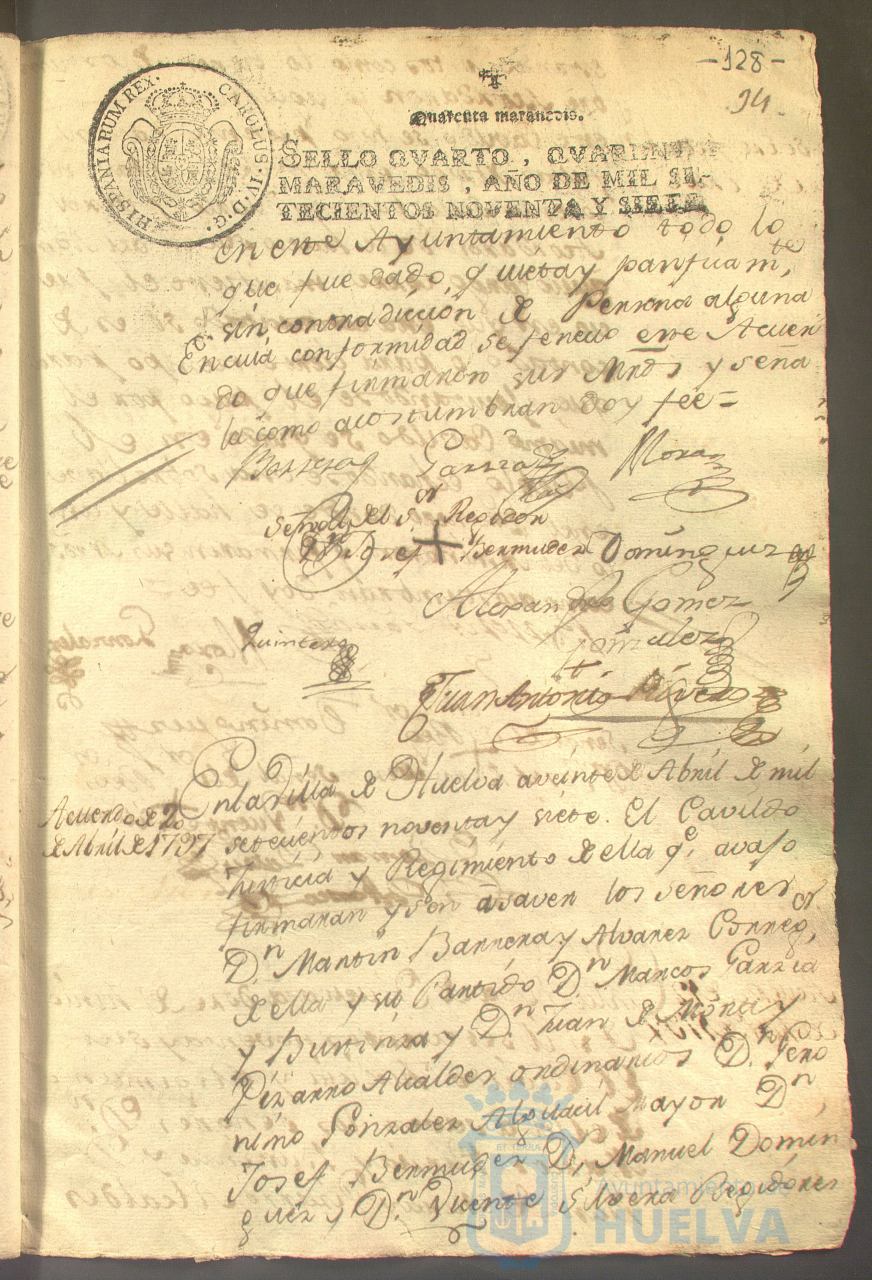 -128-
94.
Quarenta maravedis.
HISPANIARUM REX. CAROLUS·IV·D·G·
SELLO QVARTO, QVARENTA
MARAVEDIS, AÑO DE MIL SE-
TECIENTOS NOVENTA Y SIETE
en este Ayuntamiento todo lo
que fue dado, quieta y pacificam.te
sin contradiccion de Persona alguna
En cuia conformidad se fenecio este Acuer
do que firmaron sus Mrds y seña
la como acostumbran doy fee=
Barrera Garzia Mora
Señal del s.or Regidor
D.n Josef + Bermudez Dominguez
Alexandro Gomez
Gonzalez
Quintero
Juan Antonio Rivero
Acuerdo de 20
de Abril de 1797
En la Villa de Huelva a veinte de Abril de mil
setecientos noventa y siete. El Cavildo
Justicia y Regimiento de ella q.e avajo
firmaran y son a saver los señores
D.n Martin Barrera y Alvarez Correg.or
de ella y su Partido D.n Marcos Garzia
y D.n Juan de Mora y
Pizarro Alcaldes ordinarios D.n Gero
nimo Gonzalez Alguacil mayor D.n
Josef Bermudez D.n Manuel Domin
guez y D.n Vicente Silvera Regidores
Ayuntamiento de
HUELVA